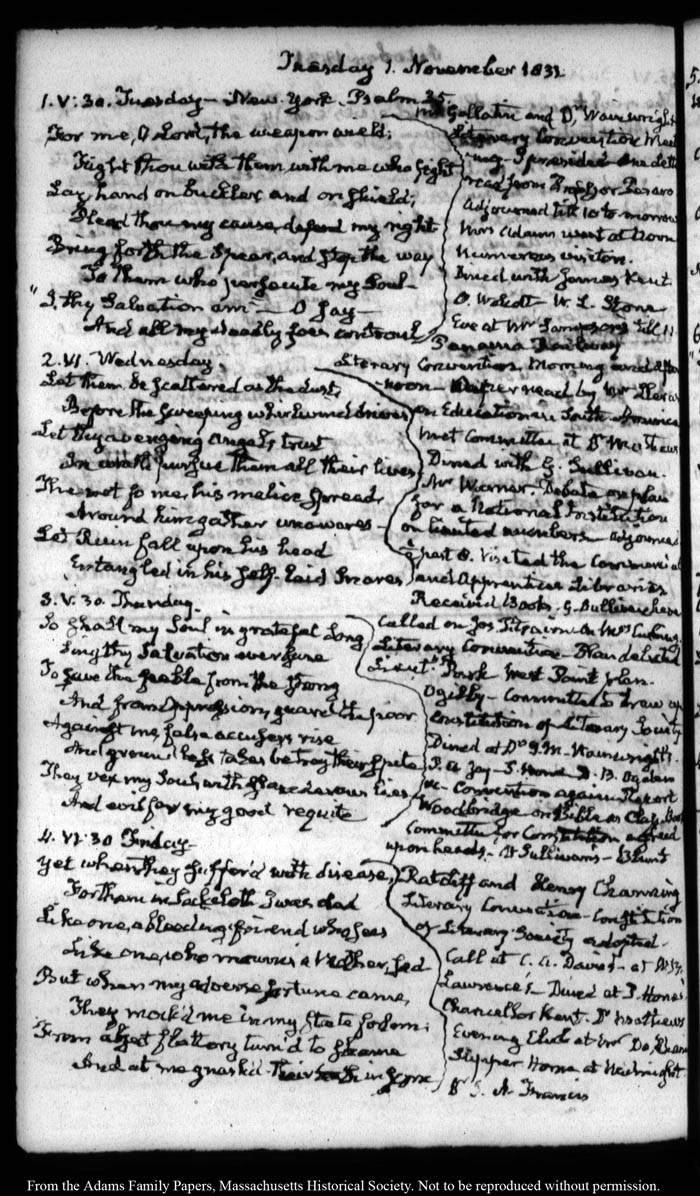 Tuesday 1. November 1831
1. V: 30. Tuesday — New-York. Psalm 35.
For me, O Lord, the weapon wield;
Fight thou with them, with me who fight
Lay hand on buckler, and on shield;
Plead thou my cause, defend my right
Bring forth the Spear, and stop the way
To them who persecute my Soul —
"I, thy Salvation am" — O say —
And all my deadly foes controul
Mr Gallatin and Dr Wainwright
Literary Convention Meet
ing. I presided One letter
read from Professor
Adjourned till 10 to-morrow
Mrs Adams went at Noon
Numerous visitors.
Dined with James Kent
O. Wolcott — W. L. Stone
Eve at Mr Sampsons till 11.
Panama Railway
2. VI. Wednesday.
Let them be scattered as the dust,
Before the sweeping whirlwind driven
Let thy avenging angels, trust
In wrath pursue them all their lives
The net for me, his malice spread,
Around him gather unawares —
Let Ruin fall upon his head
Entangled in his self-laid snares
Literary Convention, Morning and after
noon — Paper read by Mr
on Education in South America
Met Committee at Dr Mathews
Dined with G. Sullivan.
Mr Warner. Debate on plan
for a National Institution
on limited numbers adjourned
past 8. Visited the Commercial
and Apprentices Libraries
Received Books. G. Sullivan here
3. V. 30. Thursday.
So shall my Soul in grateful Song
Sing thy Salvation ever sure
To save the feeble from the strong
And from Oppression, guard the poor
Against me, false accusers rise
And groundless tales betray their spite
They vex my Soul with slanderous lies
And evil for my good requite
Called on Jos. Pitcairn &
Literary Convention — Plan debated
Lieut. Park West Point plan.
Ogilby — Committee to draw up
constitution of Literary Society
Dined at Dr J. M. Wainwright's.
P. A. Jay — P. Hone D. B. Ogden
&c — Convention again Report
Woodbridge on Bible as Class Book
Committee for Constitution agreed
upon heads. At Sullivan's — Blunt
4. VI: 30 Friday —
Yet when they suffer'd with disease,
For them in Sackcloth I was clad
Like one, a bleeding friend who sees
Like one, who mourns a Mother, sad
But when my adverse fortune came,
They mock'd me in my state forlorn;
From abject flattery turn'd to shame
And at me gnash'd their teeth in scorn
Ratcliff and Henry Channing
Literary Convention — Constitution
of Literary Society adopted.
Call at C. A. Davis's — at
Lawrence's Dined at P. Hone's
Chancellor Kent. Dr Mathews
Evening Club at Mr
Supper Home at Midnight
Dr J. W. Francis
From the Adams Family Papers, Massachusetts Historical Society. Not to be reproduced without permission.